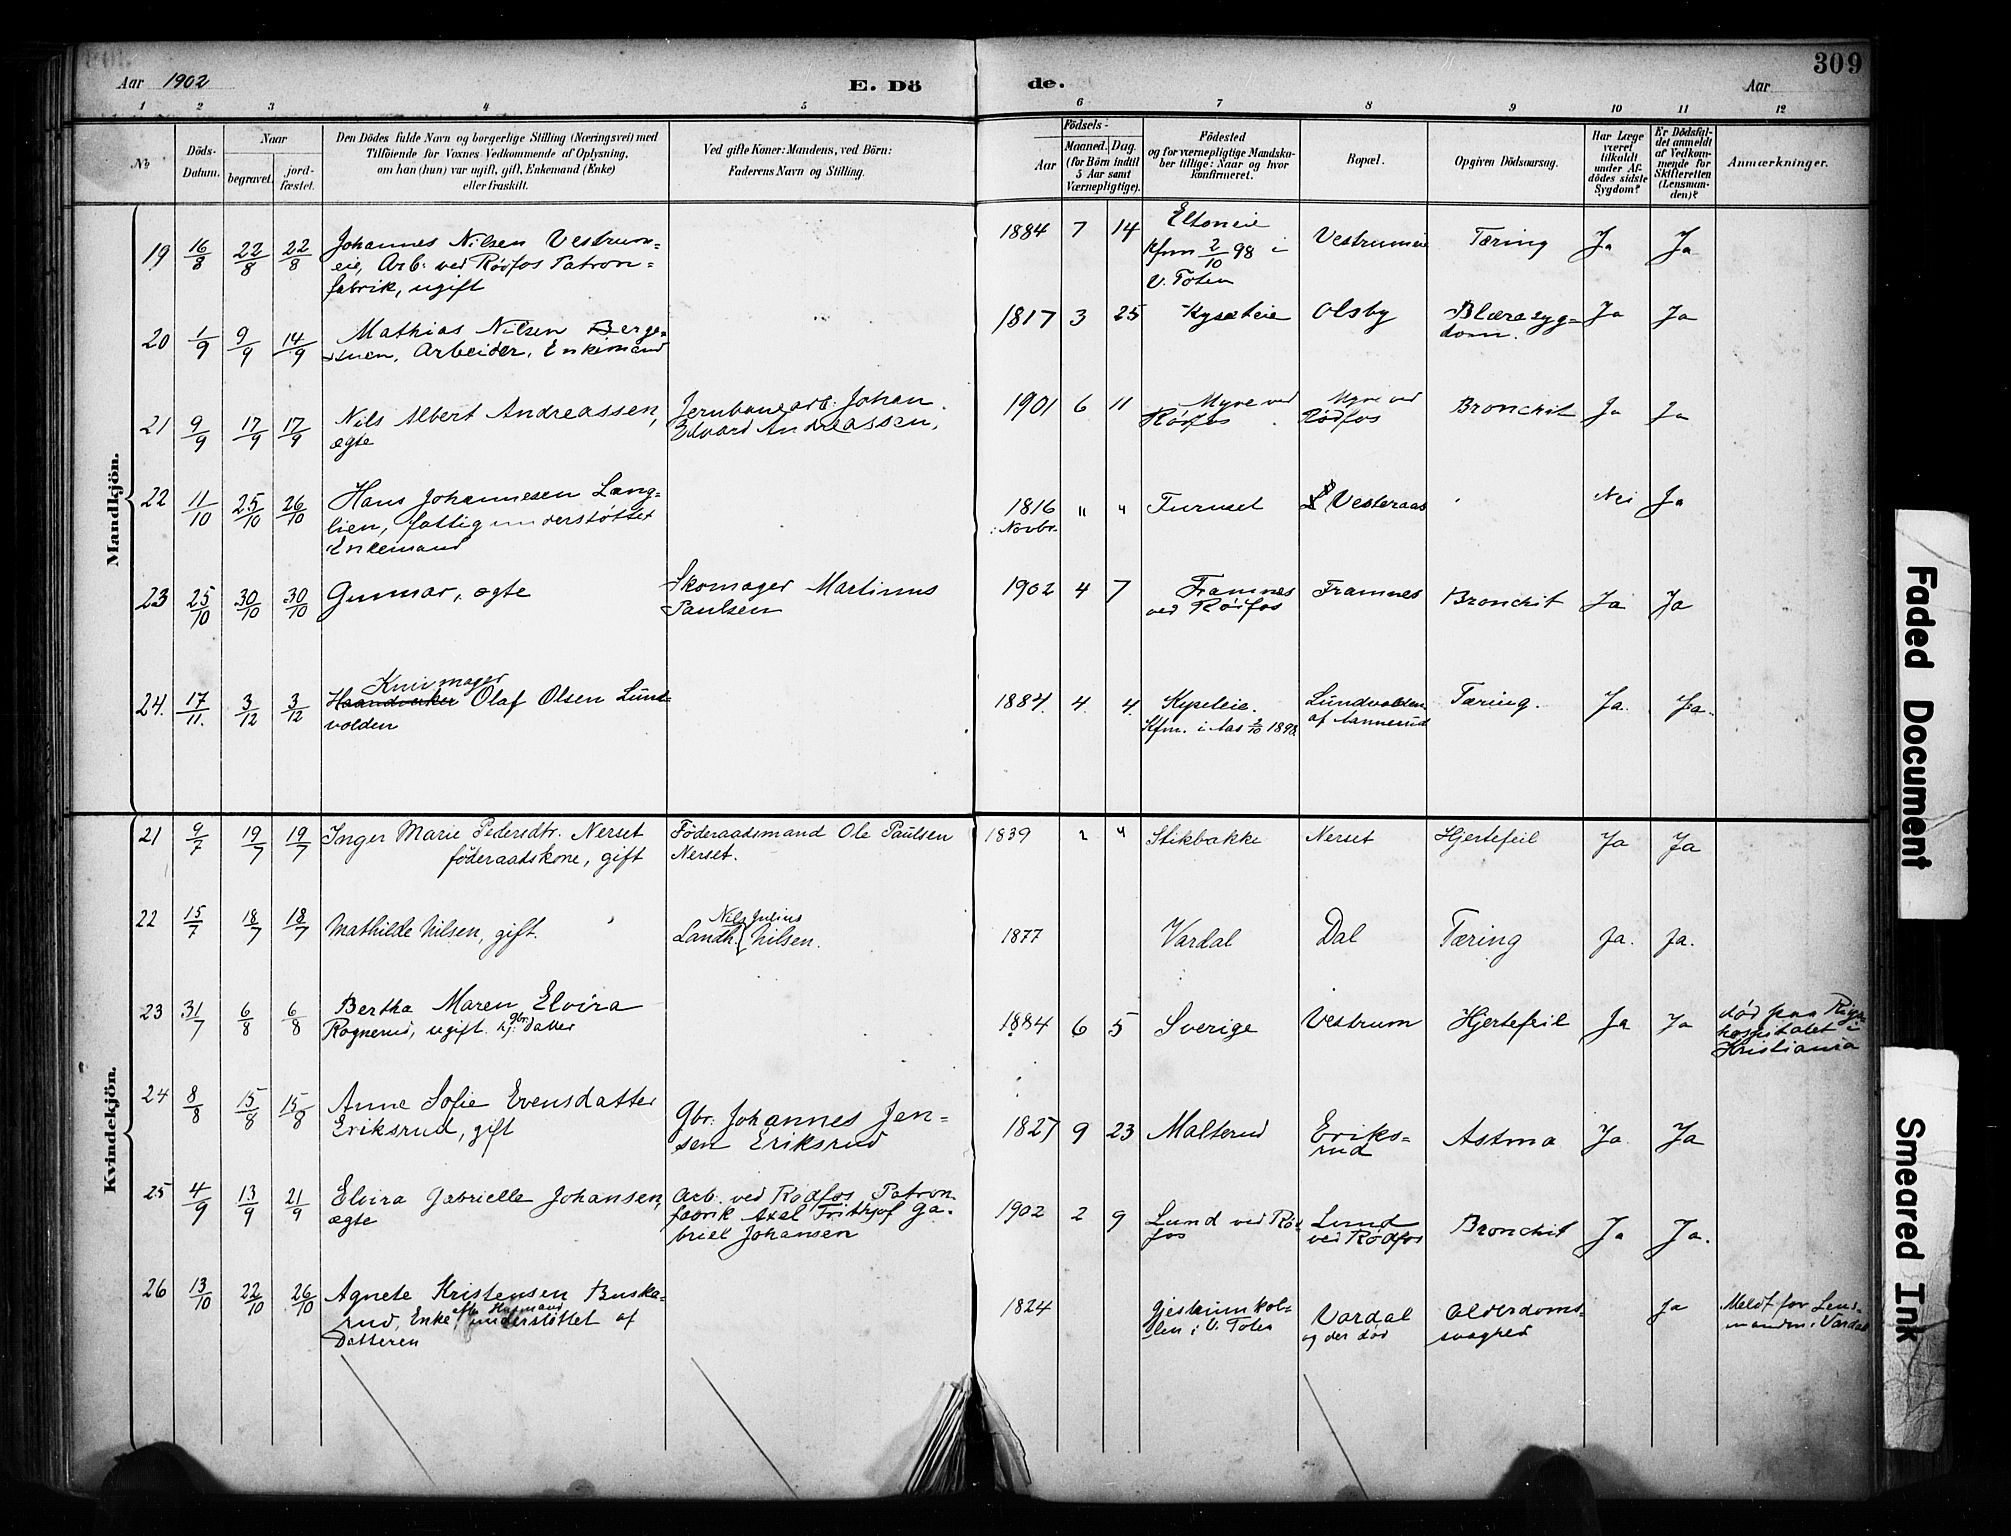 309
Aar 1902
E. Dö
de.
Aar
1 2 3 4 5 6 7 8 9 10 11 12
No
Döds-
Datum.
Naar
begravet.
jord-
fæstet.
Den Dödes fulde Navn og borgerlige Stilling (Næringsvei) med
Tilföiende for Voxnes Vedkommende af Oplysning,
om han (hun) var ugift, gift, Enkemand (Enke)
eller fraskilt.
Ved gifte Koner: Mandens, ved Börn:
Faderens Navn og Stilling.
Födsels-
Aar
Maaned. Dag.
(for Börn indtil
5 Aar samt
Værnepligtige).
Födested
og for værnepligtige Mandska-
ber tillige: Naar og hvor
konfirmeret.
Bopæl.
Opgiven Dödsaarsag.
Har Læge
været
tilkaldt
under Af-
dödes sidste
Sygdom?
Er Dödsfal-
det anmeldt
af Vedkom-
mende for
Skifteretten
(Lensman-
den)?
Anmærkninger.
Mandkjön.
19 16/8 22/8 22/8 Johannes Nilsen Vestrum- 1884 7 14 Eltoneie Vestrumeie Tæring Ja Ja
eie, Arb. ved Rødfos Patron- Kfm 2/10 98 i
fabrik, ugift V. Toten
20 1/9 9/9 14/9 Mathias Nilsen Berge- 1817 3 25 Olsby Blæresyg- Ja Ja
Arbeider, Enkemand dom.
21 9/9 17/9 17/9 Nils Albert Andreassen, Jernbanearb. Johan 1901 6 11 Myre ved Myre ved Bronchit Ja Ja
ægte Edvard Andreassen. Rødfos Rødfos
22 11/10 25/10 26/10 Hans Johannesen Lang- 1816 " " Furuset Vesteraas Nei Ja
lien, fattigunderstøttet Novbr.
Enkemand
23 25/10 30/10 30/10 Gunnar, ægte Skomager Martinus 1902 4 7 Framnes Framnes Bronchit Ja Ja
Paulsen ved Rødfos
24. 17/11. 3/12 3/12 Knivmager
Haandverker Olaf Olsen Lund- 1884 4 4. Lundvolden Tæring. Ja. Ja.
volden Kfm. i Aas 2/10 1898. af
Kvindekjön.
21 9/7 19/7 19/7 Inger Marie Pedersdtr. Nerset Föderaadsmand Ole Paulsen 1839 " " Stikbakke Nerset Hjertefeil Ja Ja
föderaadskone, gift Nerset.
22 15/7 18/7 18/7 Mathilde Nilsen, gift. Nils Julius
Landh. Nilsen. 1877 Vardal Dal Tæring Ja. Ja.
23 31/7 6/8 6/8 Bertha Maren Elvira 1884 6 5 Sverige Vestrum Hjertefeil Ja Ja død paa Rigs-
Rognerud, ugift. gbr. datter hospitalet i
Kristiania
24 8/8 15/8 15/8 Anne Sofie Evensdatter Gbr. Johannes Jen- 1827 9 23 Malterud Eriks- Astma Ja Ja
Eriksrud, gift sen Eriksrud rud
25 4/9 13/9 21/9 Elvira Gabrielle Johansen, Arb. ved Rødfos Patron- 1902 2 9 Lund ved Rød- Lund Bronchit Ja Ja.
ægte fabrik Axel Frithjof Ga- fos ved Rødfos
briel Johansen
26 13/10 22/10 26/10 Agnete Kristensen Buska- 1824 Vardal Alderdoms- Ja Meldt for Lens-
rud, Enke efter Husmand, understøttet af i V. Toten og der død svaghed manden i Vardal
Datteren
Faded Document
Smeared Ink